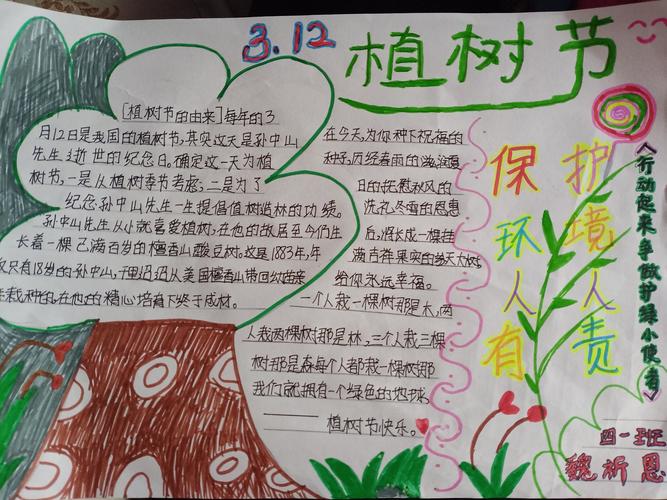 3.12 植树节
[植树节的由来]每年的3
月12日是我国的植树节,其实这天是孙中山
先生逝世的纪念日,确定这一天为植
树节,一是从植树季节考虑;二是为了
纪念孙中山先生一生提倡植树造林的功绩。
孙中山先生从小就喜爱植树,在他的故居至今仍生
长着一棵已满百岁的檀香山酸豆树。这是1883年,年
仅只有18岁的孙中山,
从美国檀香山带回幼苗亲
栽种的,在他的精心培育下终于成材。
在今天,为你种下祝福的
种子,历经春雨的滋润夏
日的抚慰秋风的
洗礼冬雪的恩惠
后,得长成一棵挂
满吉祥果实的参天大树,
给你永远幸福。
一个人栽一棵树那是木,两
人栽两棵树那是林,三个人栽三棵
树那是森每个人都栽一棵树那
我们就拥有一个绿色的地球。
——植树节快乐。
保护
环境
人人
有责
《行动起来争做护绿小使者》
四一班
魏祈恩